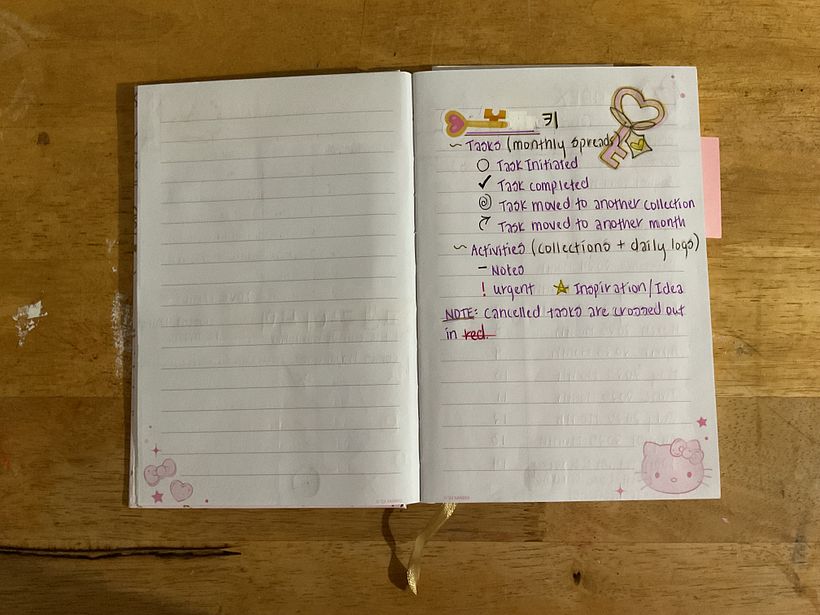 키
~ Tasks (monthly spreads)
○ Task Initiated
✓ Task completed
Task moved to another collection
Task moved to another month
~ Activities (collections + daily logs)
– Notes
! urgent ★ Inspiration/Idea
NOTE: cancelled tasks are crossed out
in red.